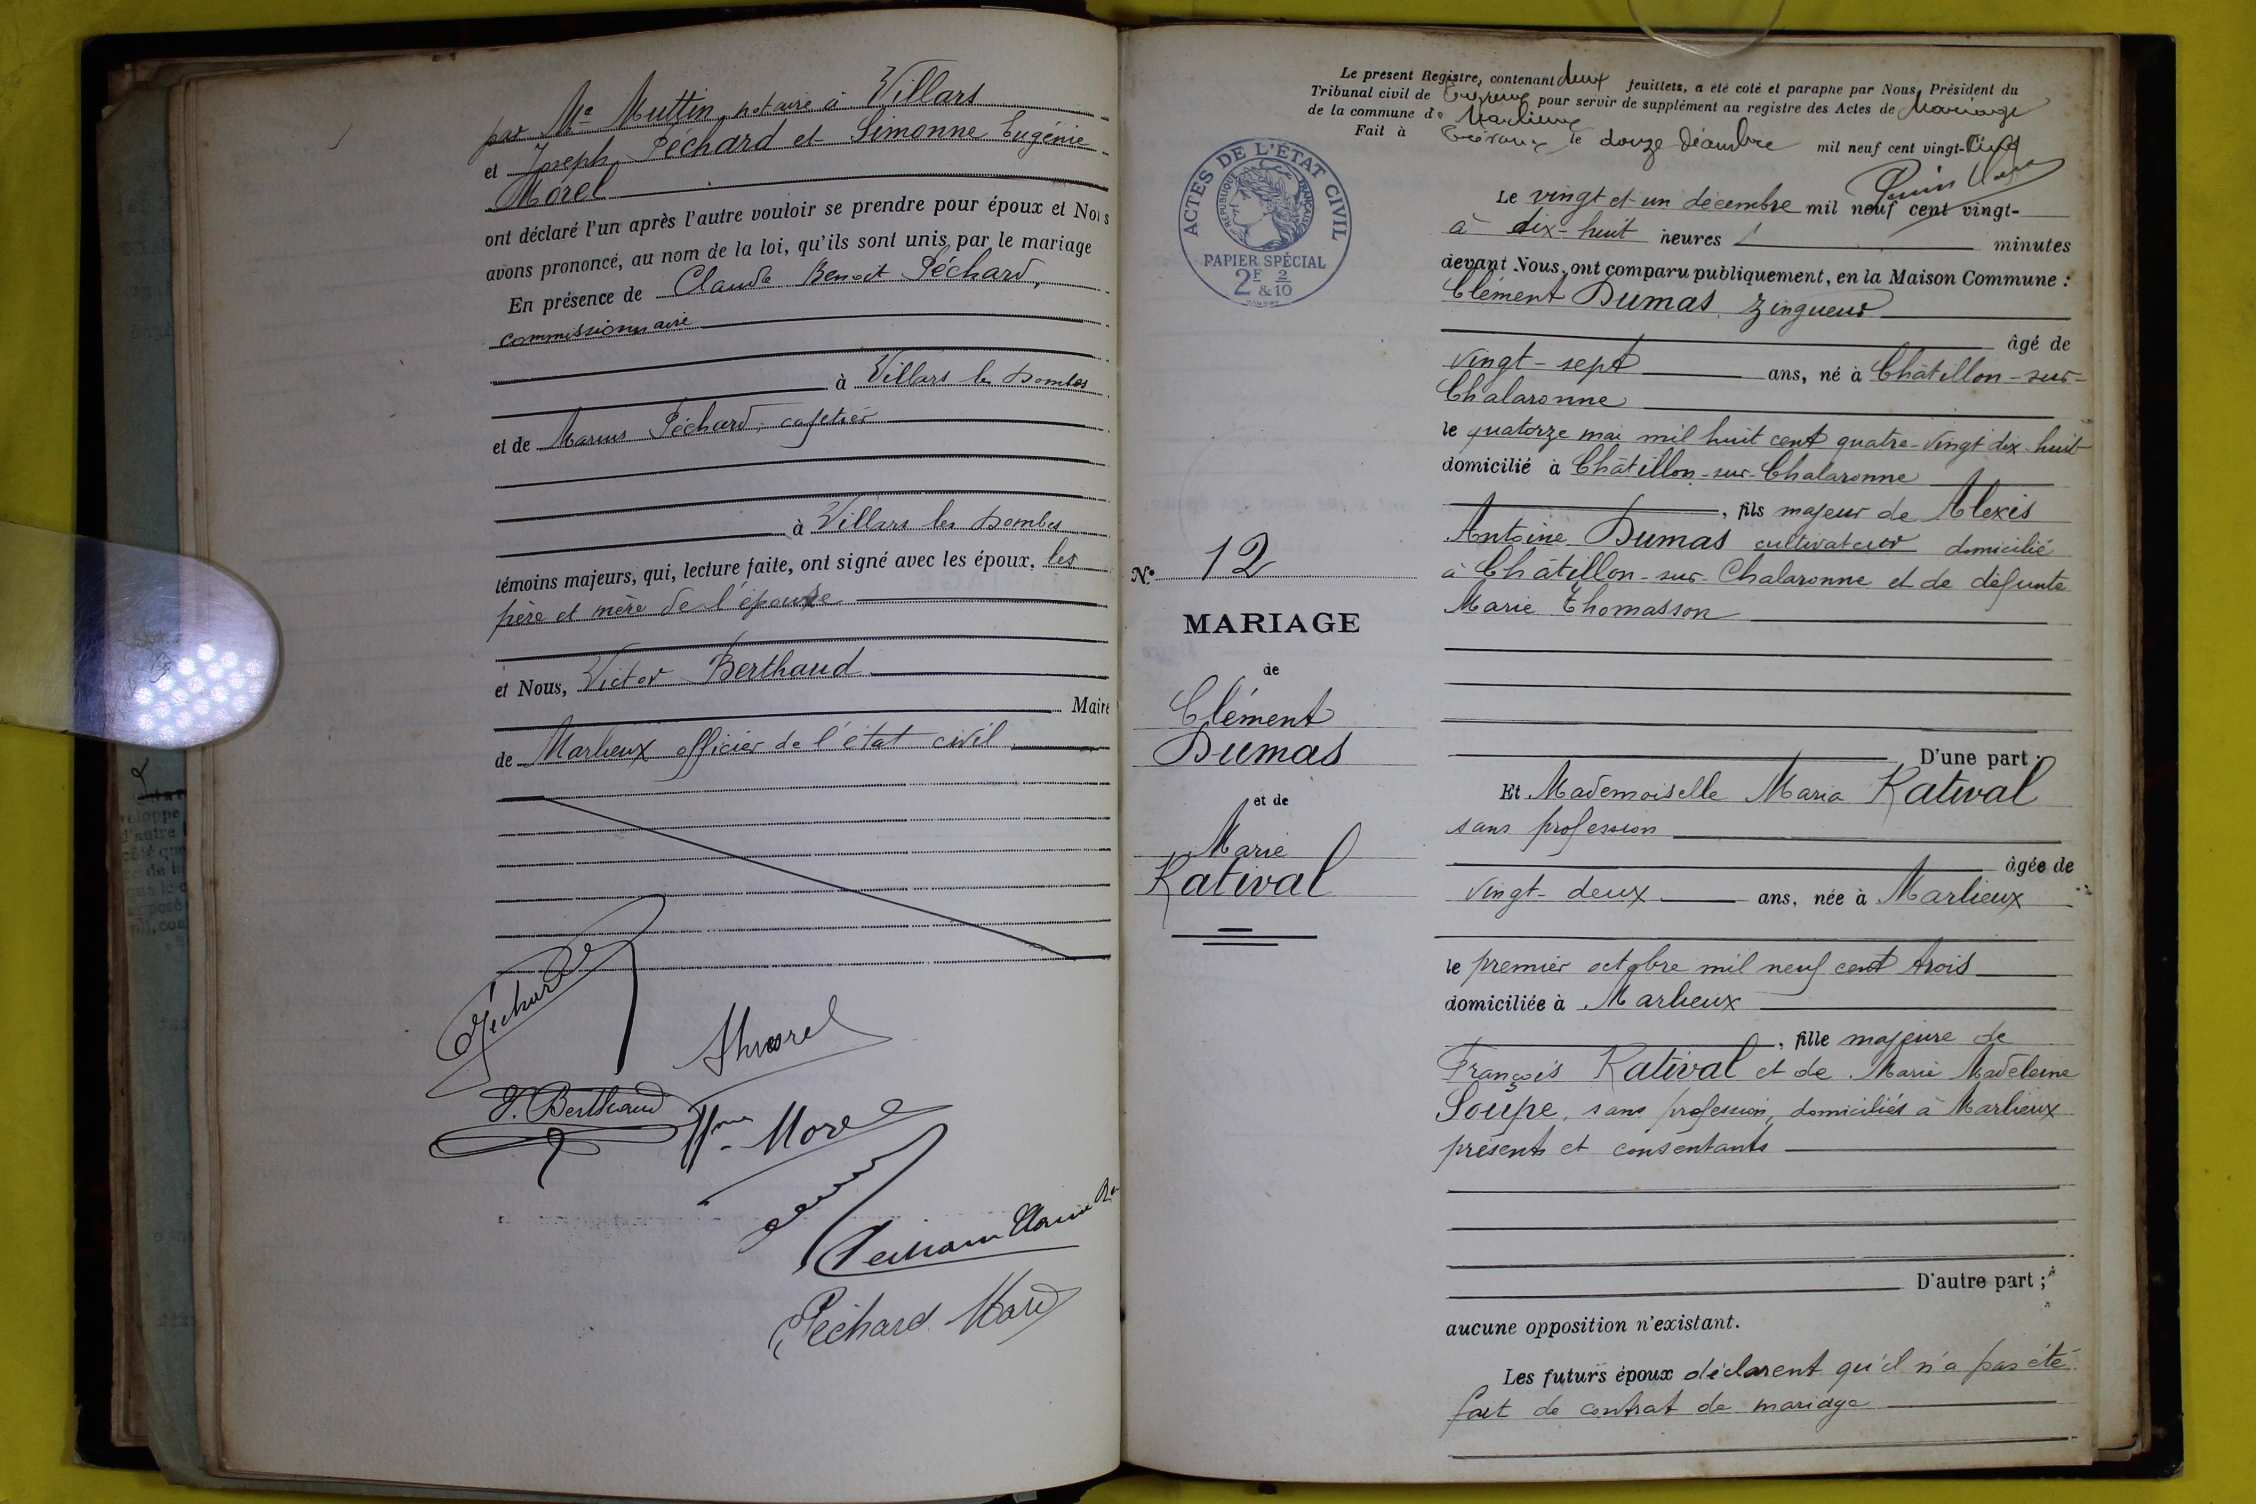 par Me Muttin, notaire à Villars
et Joseph Péchard et Simonne Eugénie
Morel
ont déclaré l'un après l'autre vouloir se prendre pour époux et Nous
avons prononcé, au nom de la loi, qu'ils sont unis par le mariage
En présence de Claude Benoit Péchard,
commissionnaire
à Villars les Dombes
et de Marius Péchard, cafetier
à Villars les Dombes
témoins majeurs, qui, lecture faite, ont signé avec les époux, les
père et mère de l'épouse
et Nous, Victor Berthaud
Maire
de Marlieux officier de l'état civil
Péchard
V. Berthaud
Mme Morel
Péchard
Le présent Registre, contenant deux feuillets, a été coté et paraphé par Nous, Président du
Tribunal civil de Trévoux pour servir de supplément au registre des Actes de Mariage
de la commune de Marlieux
Fait à Trévoux le douze décembre mil neuf cent vingt-cinq
ACTES DE L'ÉTAT CIVIL
RÉPUBLIQUE FRANÇAISE
PAPIER SPÉCIAL
2F & 2/10
Le vingt et un décembre mil neuf cent vingt-
à dix-huit heures minutes
devant Nous, ont comparu publiquement, en la Maison Commune :
Clément Dumas, zingueur
âgé de
vingt-sept ans, né à Châtillon-sur-
Chalaronne
le quatorze mai mil huit cent quatre-vingt dix-huit
domicilié à Châtillon-sur-Chalaronne
, fils majeur de Alexis
Antoine Dumas cultivateur domicilié
à Châtillon-sur-Chalaronne et de défunte
Marie Thomasson
D'une part ;
N° 12
MARIAGE
de
Clément
Dumas
et de
Marie
Katival
Et Mademoiselle Maria Katival
sans profession
âgée de
vingt-deux ans, née à Marlieux
le premier octobre mil neuf cent trois
domiciliée à Marlieux
, fille majeure de
François Katival et de Marie Madeleine
Soupe, sans profession, domiciliés à Marlieux
présents et consentants
D'autre part ;
aucune opposition n'existant.
Les futurs époux déclarent qu'il n'a pas été
fait de contrat de mariage